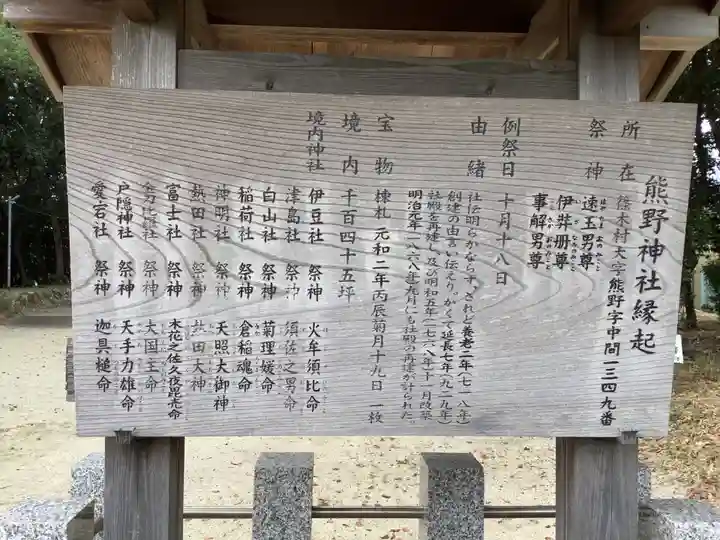 熊野神社縁起
所在 篠木村大字熊野字中間一三四九番
祭神 速玉男尊
伊弉册尊
事解男尊
例祭日 十月十八日
由緒 社伝明らかならず、されど養老二年(七一八年)
創建の由言い伝え
かくて延長七年(九二九年)
社殿を再建し及び明和五年(一七六八年)十一月改築
明治元年(一八六八年)九月にも社殿の再建が計られた。
宝物 棟札 元和二年丙辰菊月十九日 一枚
境内 千百四十五坪
境内神社 伊豆社 祭神 火牟須比命
津島社 祭神 須佐之男命
白山社 祭神 菊理媛命
稲荷社 祭神 倉稲魂命
神明社 祭神 天照大御神
熱田社 祭神 熱田大神
富士社 祭神 木花之佐久夜毘売命
金刀比羅社 祭神 大国主命
戸隠神社 祭神 天手力雄命
愛宕社 祭神 迦具槌命